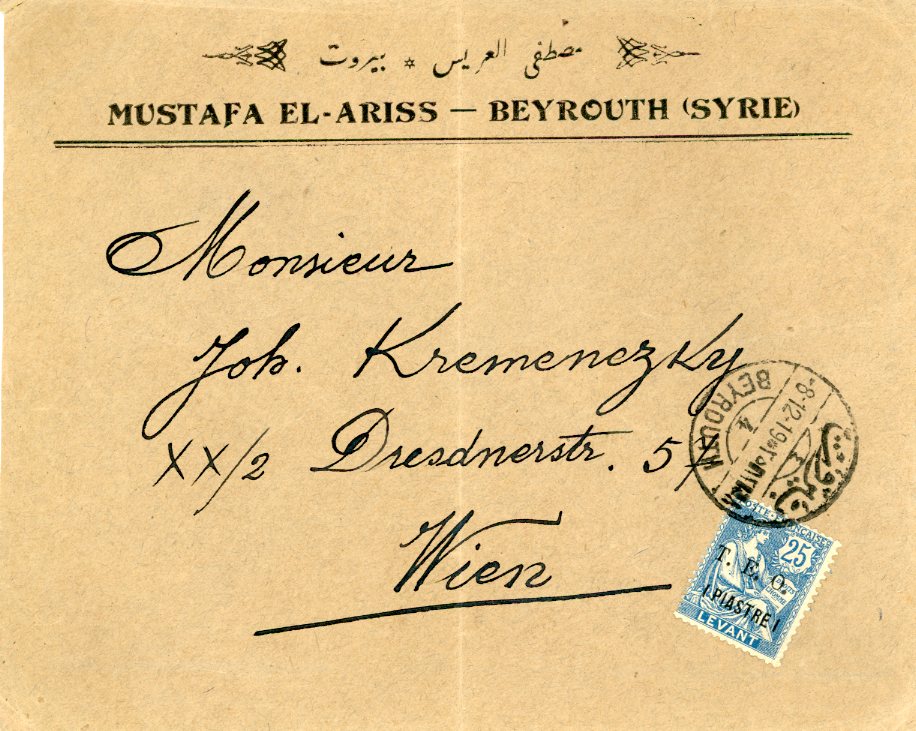 مصطفى العريس * بيروت
MUSTAFA EL-ARISS — BEYROUTH (SYRIE)
Monsieur
Joh. Kremenezky
XX/2 Dresdnerstr. 57
Wien
BEYROUTH
4
-8-12-19
بيروت
POSTE FRANÇAISE
25
T. E. O.
1 PIASTRE 1
LEVANT